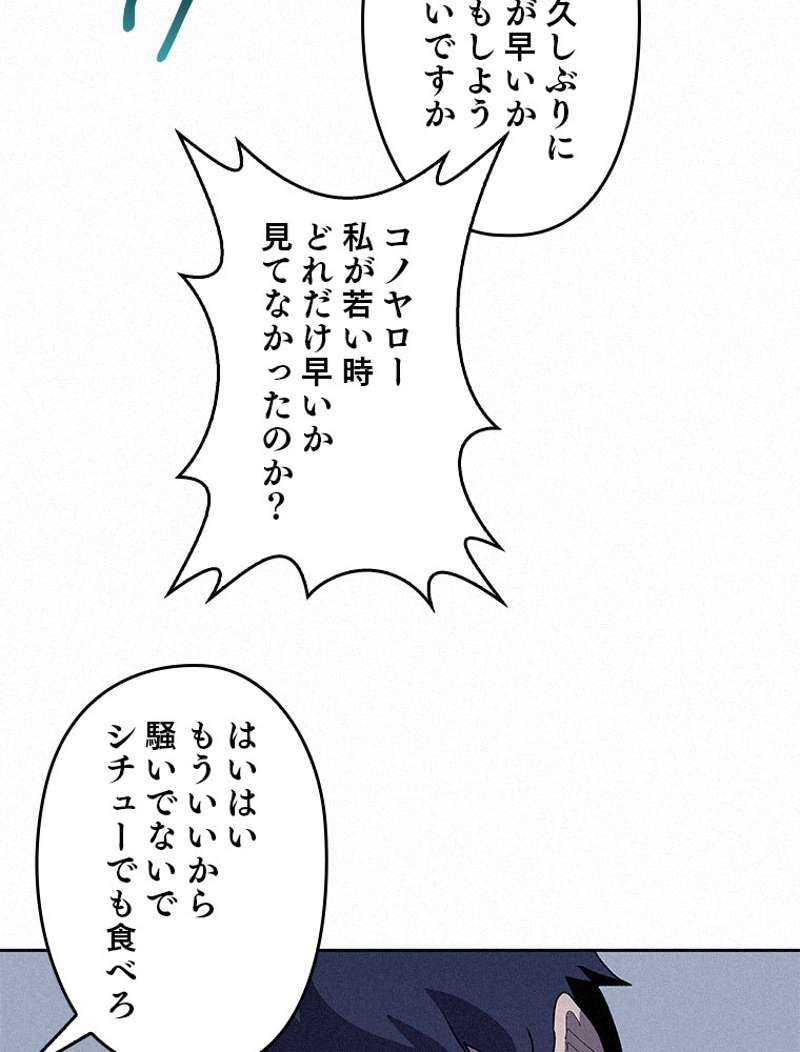 久しぶりに
が早いか
もしよう
いですか
コノヤロー
私が若い時
どれだけ早いか
見てなかったのか？
はいはい
もういいから
騒いでないで
シチューでも食べろ